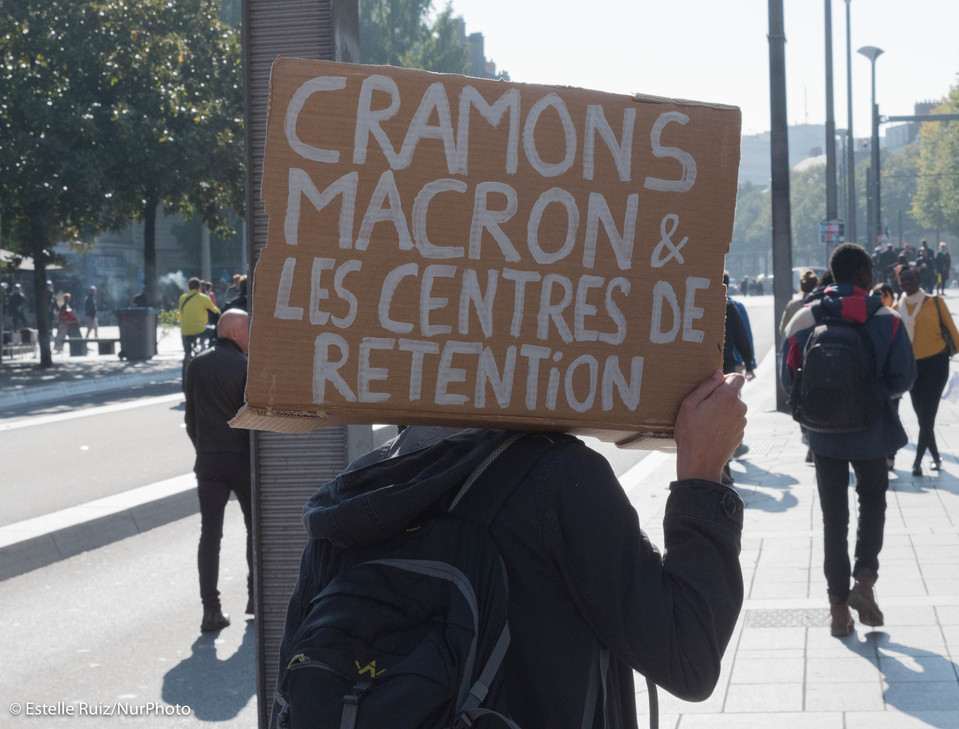 CRAMONS
MACRON &
LES CENTRES DE
RETENTiON
© Estelle Ruiz/NurPhoto